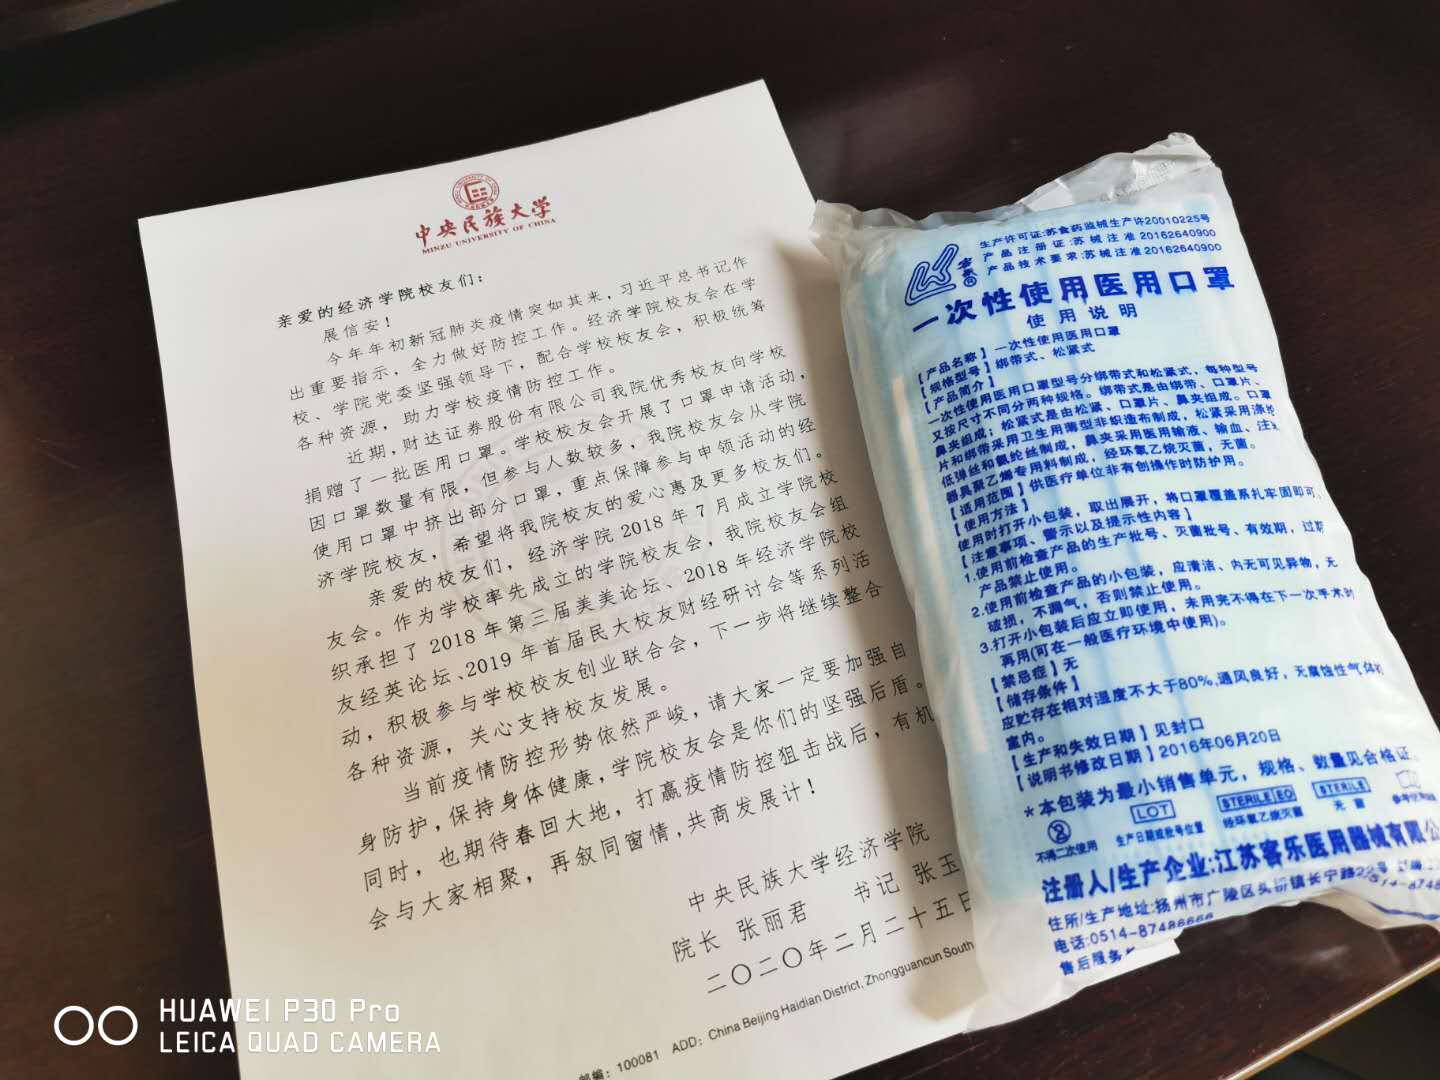 中央民族大学
MINZU UNIVERSITY OF CHINA
亲爱的经济学院校友们：
展信安！
今年年初新冠肺炎疫情突如其来，习近平总书记作
出重要指示，全力做好防控工作。经济学院校友会在学
校、学院党委坚强领导下，配合学校校友会，积极统筹
各种资源，助力学校疫情防控工作。
近期，财达证券股份有限公司我院优秀校友向学校
捐赠了一批医用口罩。学校校友会开展了口罩申请活动，
因口罩数量有限，但参与人数较多，我院校友会从学院
使用口罩中挤出部分口罩，重点保障参与申领活动的经
济学院校友，希望将我院校友的爱心惠及更多校友们。
亲爱的校友们，经济学院2018年7月成立学院校
友会。作为学校率先成立的学院校友会，我院校友会组
织承担了2018年第三届美美论坛、2018年经济学院校
友经英论坛、2019年首届民大校友财经研讨会等系列活
动，积极参与学校校友创业联合会，下一步将继续整合
各种资源，关心支持校友发展。
当前疫情防控形势依然严峻，请大家一定要加强自
身防护，保持身体健康，学院校友会是你们的坚强后盾。
同时，也期待春回大地，打赢疫情防控狙击战后，有机
会与大家相聚，再叙同窗情，共商发展计！
中央民族大学经济学院
院长 张丽君 书记 张玉
二〇二〇年二月二十五日
邮编：100081 ADD：China Beijing Haidian District, Zhongguancun South
生产许可证:苏食药监械生产许20010225号
产品注册证:苏械注准20162640900
产品技术要求:苏械注准20162640900
一次性使用医用口罩
使用说明
【产品名称】一次性使用医用口罩
【规格型号】绑带式、松紧式
【产品简介】
一次性使用医用口罩型号分绑带式和松紧式，每种型号
又按尺寸不同分两种规格。绑带式是由绑带、口罩片、
鼻夹组成；松紧式是由松紧、口罩片、鼻夹组成。口罩
片和绑带采用卫生用薄型非织造布制成，松紧采用涤纶
低弹丝和氨纶丝制成，鼻夹采用医用输液、输血、注
器具聚乙烯专用料制成，经环氧乙烷灭菌，无菌。
【适用范围】供医疗单位非有创操作时防护用。
【使用方法】
使用时打开小包装，取出展开，将口罩覆盖系扎牢固即可。
【注意事项、警示以及提示性内容】
1.使用前检查产品的生产批号、灭菌批号、有效期，过期
产品禁止使用。
2.使用前检查产品的小包装，应清洁、内无可见异物，无
破损，不漏气，否则禁止使用。
3.打开小包装后应立即使用，未用完不得在下一次手术时
再用(可在一般医疗环境中使用)。
【禁忌症】无
【储存条件】
应贮存在相对湿度不大于80%,通风良好，无腐蚀性气体
室内。
【生产和失效日期】见封口
【说明书修改日期】2016年06月20日
*本包装为最小销售单元，规格、数量见合格证。
LOT STERILE EO STERILE
不得二次使用 生产日期或批号位置 经环氧乙烷灭菌 无菌
注册人/生产企业:江苏客乐医用器械有限公
住所/生产地址:扬州市广陵区头桥镇长宁路22号
电话:0514-87486666
售后服务
HUAWEI P30 Pro
LEICA QUAD CAMERA